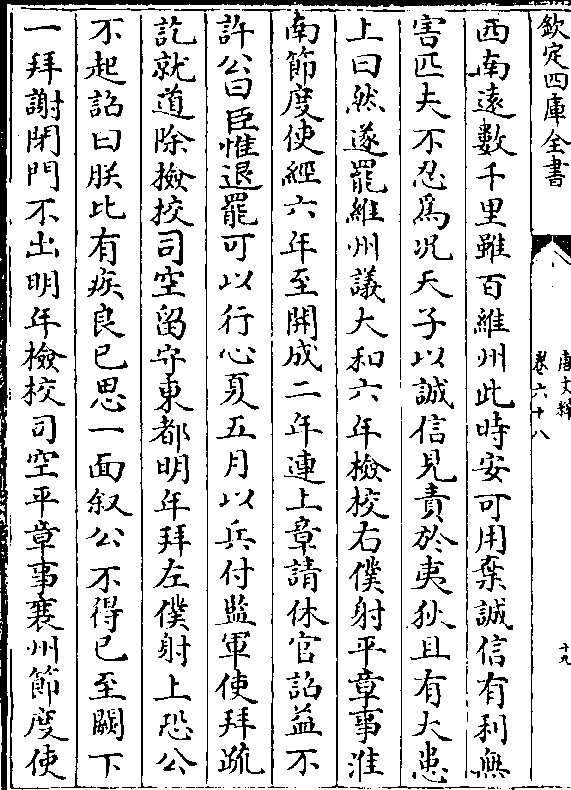 欽定四庫全書
唐文粹
卷六十八
十九
西南遠數千里雖百維州此時安可用棄誠信有利無
害匹夫不忍為况天子以誠信見責於夷狄且有大患
上曰然遂罷維州議大和六年檢校右僕射平章事淮
南節度使經六年至開成二年連上章請休官詔益不
許公曰臣惟退罷可以行心夏五月以兵付監軍使拜疏
訖就道除檢挍司空留守東都明年拜左僕射上恐公
不起詔曰朕比有疾良已思一面叙公不得已至闕下
一拜謝閉門不出明年檢校司空平章事襄州節度使